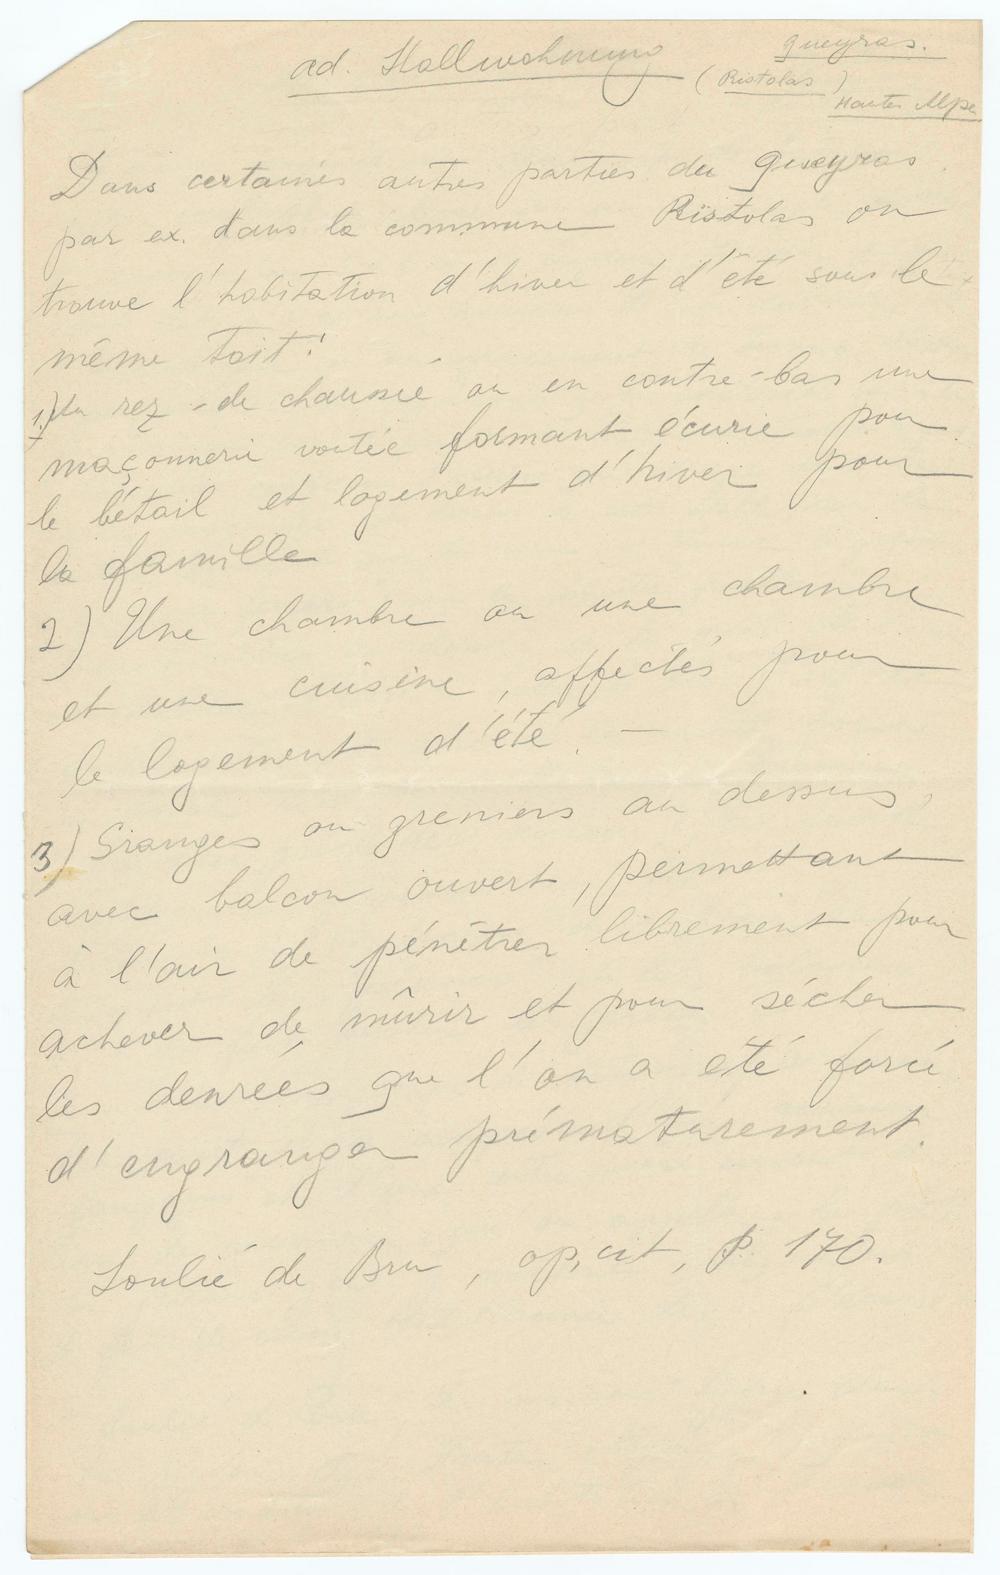 ad. Stallwohnung
Queyras.
(Ristolas)
Hautes Alpes
Dans certaines autres parties du Queyras
par ex. dans la commune Ristolas on
trouve l'habitation d'hiver et d'été sous le
même toit:
1) Au rez-de chaussée ou en contre-bas une
maçonnerie voutée formant écurie pour
le bétail et logement d'hiver pour
la famille
2) Une chambre ou une chambre
et une cuisine, affectés pour
le logement d'été. —
3) Granges ou greniers au dessus,
avec balcon ouvert, permettant
à l'air de pénétrer librement pour
achever de mûrir et pour sécher
les denrées que l'on a été forcé
d'engranger prématurement.
Soulié de Bru, op, cit, p. 170.